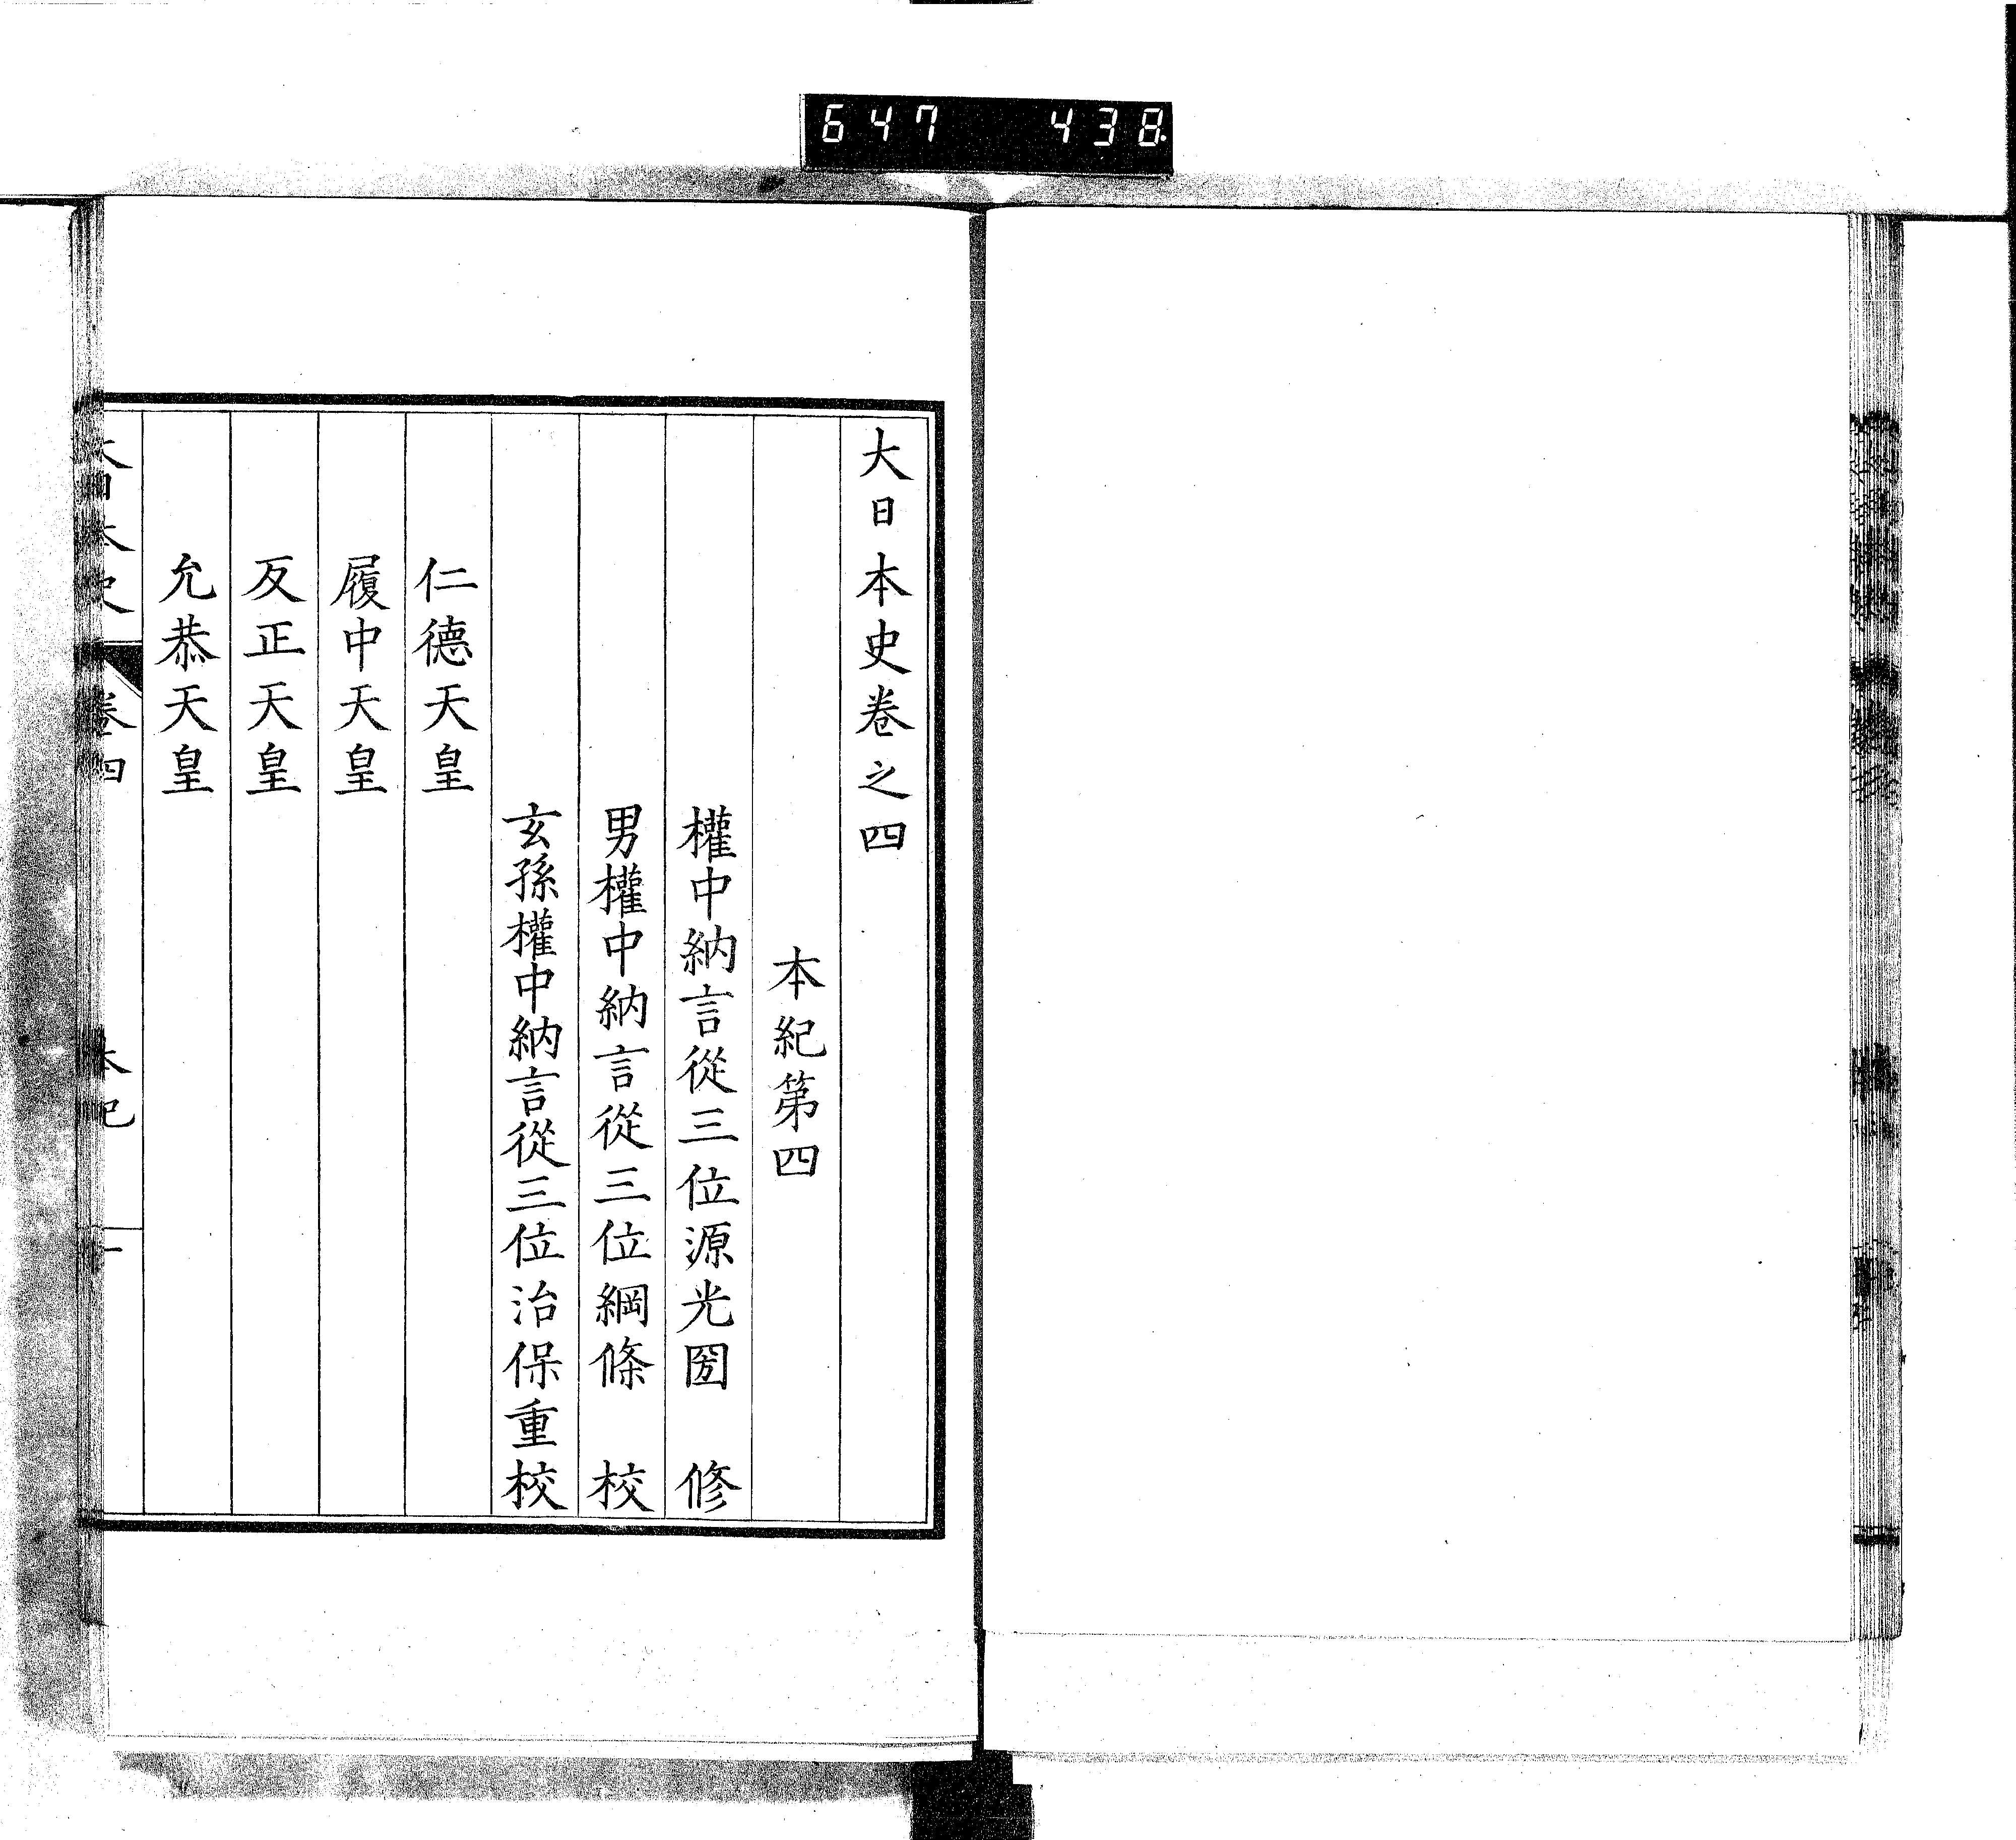 647 438
大日本史卷之四
本紀第四
權中納言從三位源光圀 修
男權中納言從三位綱條 校
玄孫權中納言從三位治保重校
仁德天皇
履中天皇
反正天皇
允恭天皇
大日本史 卷四 本紀 一